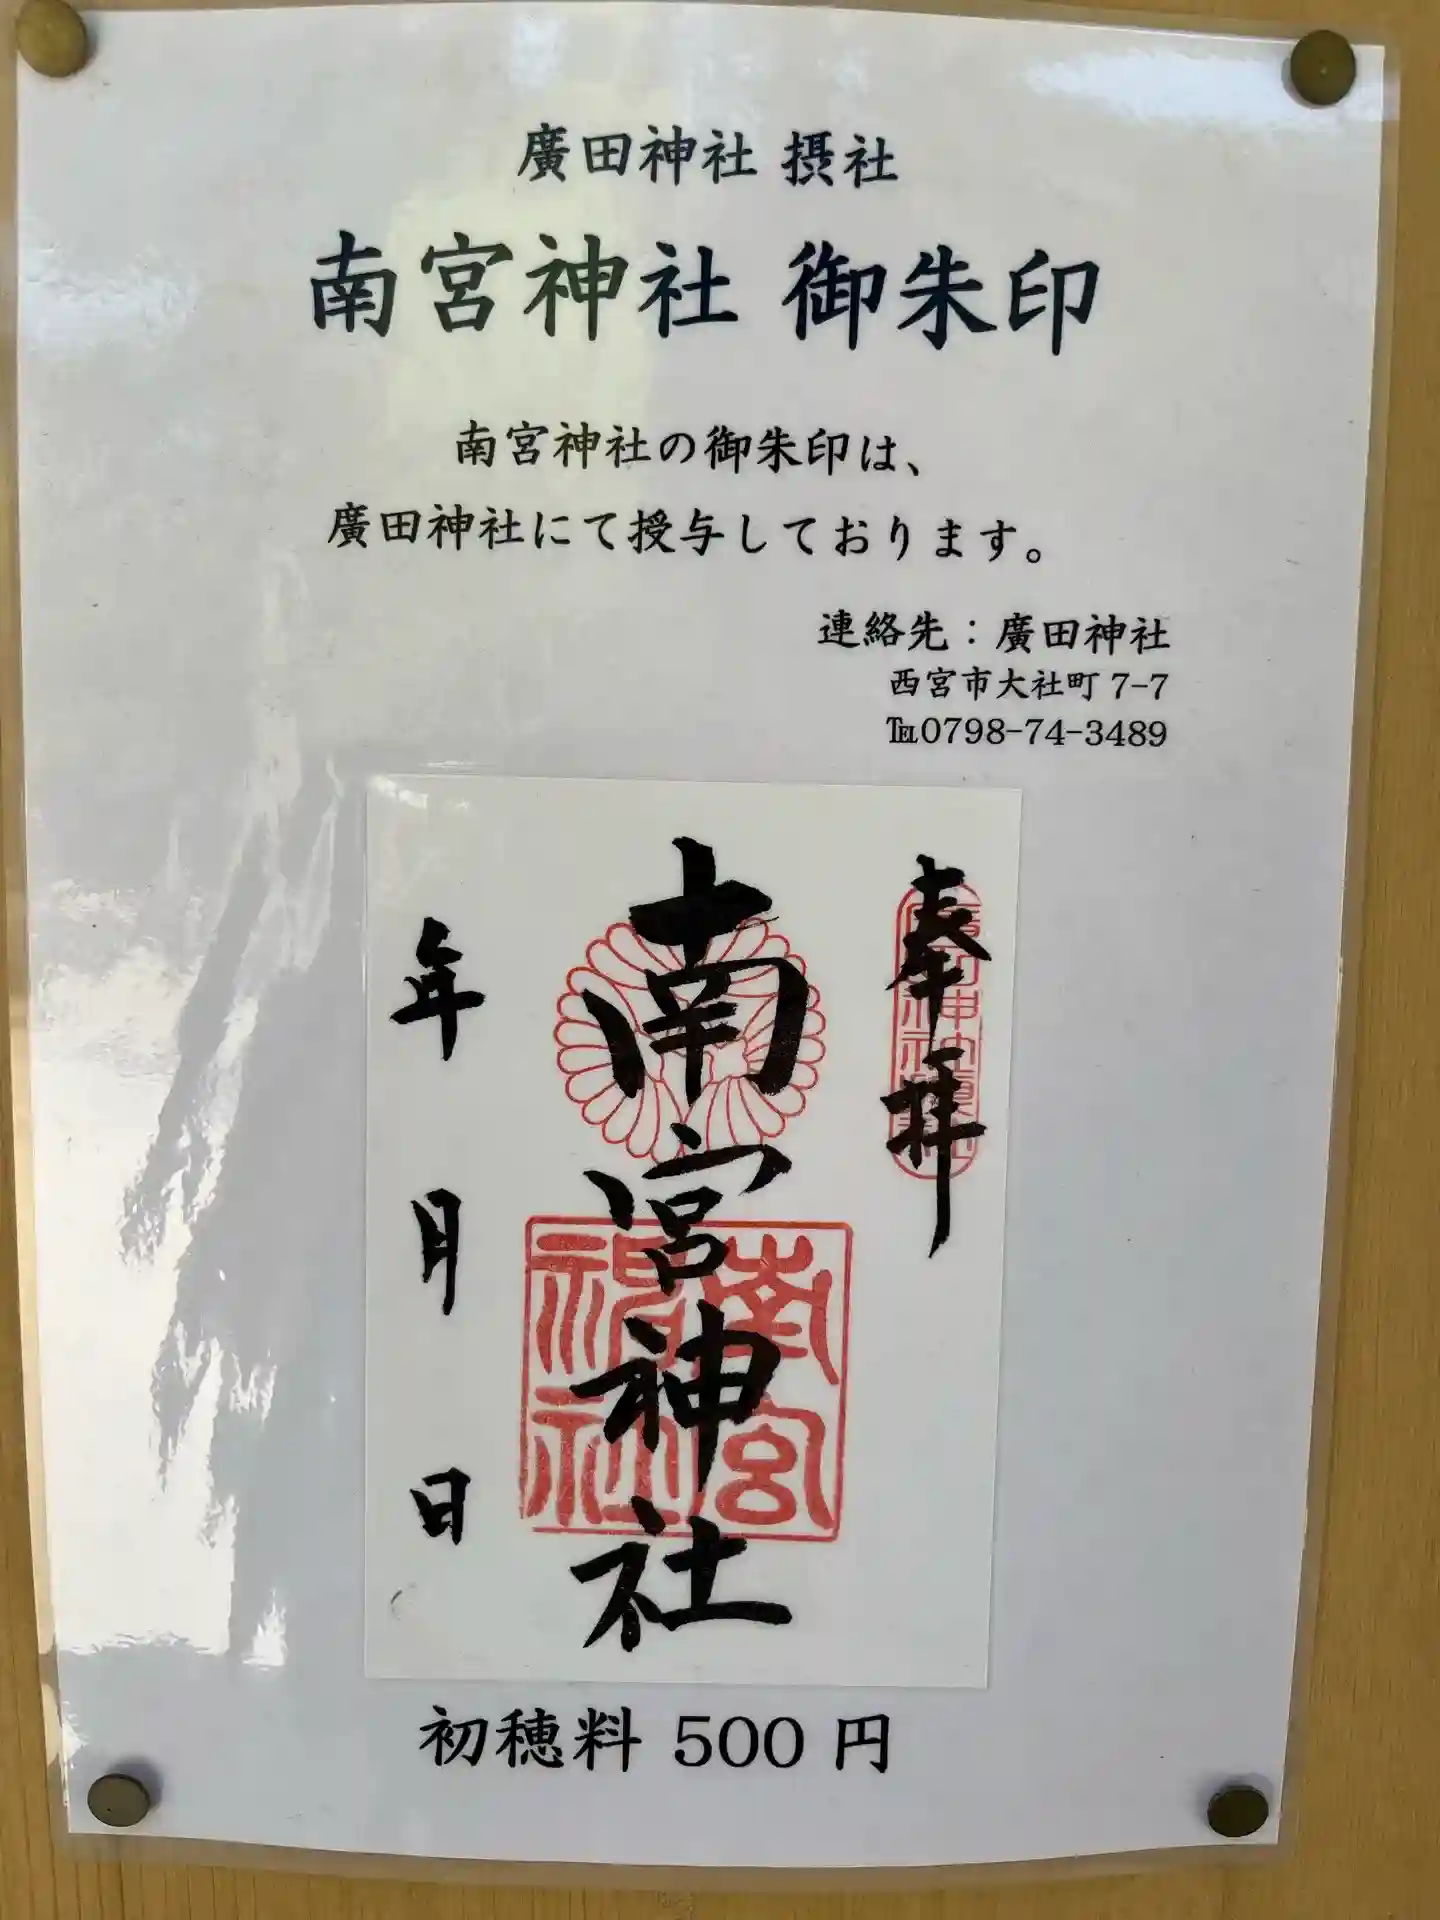 廣田神社 摂社
南宮神社 御朱印
南宮神社の御朱印は、
廣田神社にて授与しております。
連絡先：廣田神社
西宮市大社町 7-7
℡0798-74-3489
奉拝
廣田神社摂社
南宮神社
南宮神社
年 月 日
初穂料 500 円